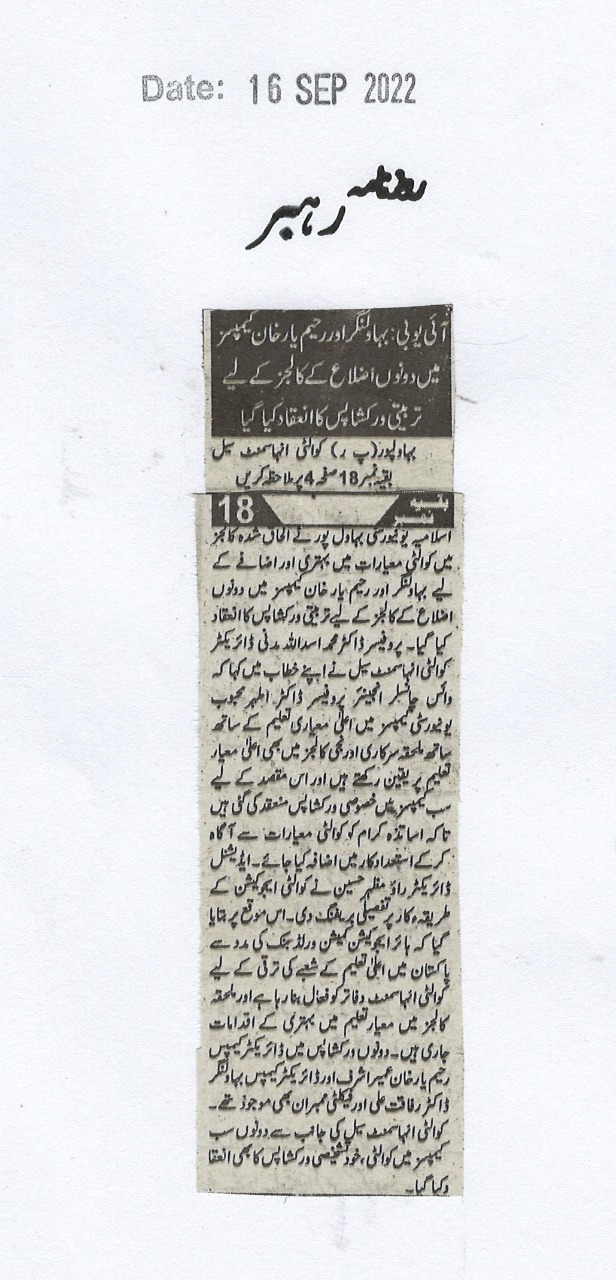 Date: 16 SEP 2022
روزنامہ
رہبر
آئی یو بی: بہاولنگر اور رحیم یار خان کیمپسز
میں دونوں اضلاع کے کالجز کے لیے
تربیتی ورکشاپس کا انعقاد کیا گیا
بہاولپور (پ ر) کوالٹی انہاسمنٹ سیل
بقیہ نمبر 18 صفحہ 4 پر ملاحظہ کریں
بقیہ نمبر 18
اسلامیہ یونیورسٹی بہاول پور نے الحاق شدہ کالجز
میں کوالٹی معیارات میں بہتری اور اضافے کے
لیے بہاولنگر اور رحیم یار خان کیمپسز میں دونوں
اضلاع کے کالجز کے لیے تربیتی ورکشاپس کا انعقاد
کیا گیا۔ پروفیسر ڈاکٹر محمد اسداللہ مدنی ڈائریکٹر
کوالٹی انہاسمنٹ سیل نے اپنے خطاب میں کہا کہ
وائس چانسلر انجینئر پروفیسر ڈاکٹر اطہر محبوب
یونیورسٹی کیمپسز میں اعلیٰ معیاری تعلیم کے ساتھ
ساتھ ملحقہ سرکاری اور نجی کالجز میں بھی اعلیٰ معیار
تعلیم پر یقین رکھتے ہیں اور اس مقصد کے لیے
سب کیمپسز میں خصوصی ورکشاپس منعقد کی گئی ہیں
تاکہ اساتذہ کرام کو کوالٹی معیارات سے آگاہ
کر کے استعداد کار میں اضافہ کیا جائے۔ ایڈیشنل
ڈائریکٹر راؤ مظہر حسین نے کوالٹی ایجوکیشن کے
طریقہ کار پر تفصیلی بریفنگ دی۔ اس موقع پر بتایا
گیا کہ ہائر ایجوکیشن کمیشن ورلڈ بنک کی مدد سے
پاکستان میں اعلیٰ تعلیم کے شعبے کی ترقی کے لیے
کوالٹی انہاسمنٹ دفاتر کو فعال بنا رہا ہے اور ملحقہ
کالجز میں معیار تعلیم میں بہتری کے اقدامات
جاری ہیں۔ دونوں ورکشاپس میں ڈائریکٹر کیمپس
رحیم یار خان عمیر اشرف اور ڈائریکٹر کیمپس بہاولنگر
ڈاکٹر رفاقت علی اور فیکلٹی ممبران بھی موجود تھے۔
کوالٹی انہاسمنٹ سیل کی جانب سے دونوں سب
کیمپسز میں کوالٹی، خود تشخیصی ورکشاپس کا بھی انعقا
د کیا گیا۔